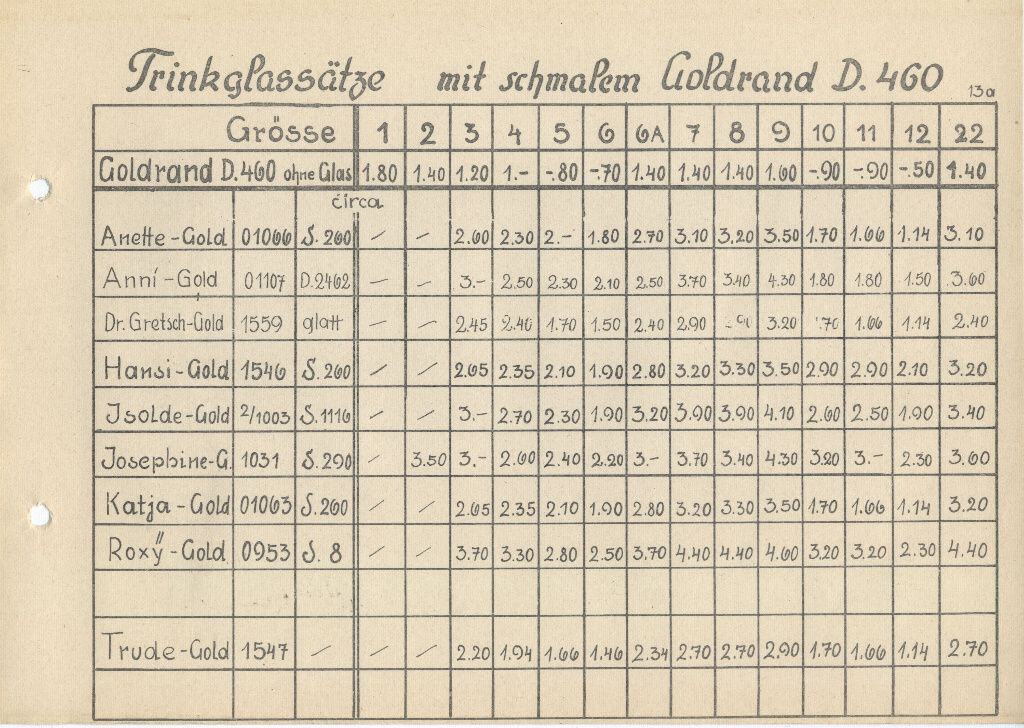 Trinkglassätze mit schmalem Goldrand D. 460
13a
Grösse 1 2 3 4 5 6 6A 7 8 9 10 11 12 22
Goldrand D.460 ohne Glas 1.80 1.40 1.20 1.- -.80 -.70 1.40 1.40 1.40 1.60 -.90 -.90 -.50 1.40
circa
Anette-Gold 01066 S. 260 - - 2.60 2.30 2.- 1.80 2.70 3.10 3.20 3.50 1.70 1.66 1.14 3.10
Anni-Gold 01107 D.2462 - - 3.- 2.50 2.30 2.10 2.50 3.70 3.40 4.30 1.80 1.80 1.50 3.60
Dr. Gretsch-Gold 1559 glatt - - 2.45 2.40 1.70 1.50 2.40 2.90 3.20 1.66 1.14 2.40
Hansi-Gold 1546 S. 260 - - 2.65 2.35 2.10 1.90 2.80 3.20 3.30 3.50 2.90 2.90 2.10 3.20
Isolde-Gold 2/1003 S.1116 - - 3.- 2.70 2.30 1.90 3.20 3.90 3.90 4.10 2.60 2.50 1.90 3.40
Josephine-G. 1031 S. 290 - 3.50 3.- 2.60 2.40 2.20 3.- 3.70 3.40 4.30 3.20 3.- 2.30 3.60
Katja-Gold 01063 S. 260 - - 2.65 2.35 2.10 1.90 2.80 3.20 3.30 3.50 1.70 1.66 1.14 3.20
Roxy-Gold 0953 S. 8 - - 3.70 3.30 2.80 2.50 3.70 4.40 4.40 4.60 3.20 3.20 2.30 4.40
Trude-Gold 1547 - - - 2.20 1.94 1.66 1.46 2.34 2.70 2.70 2.90 1.70 1.66 1.14 2.70